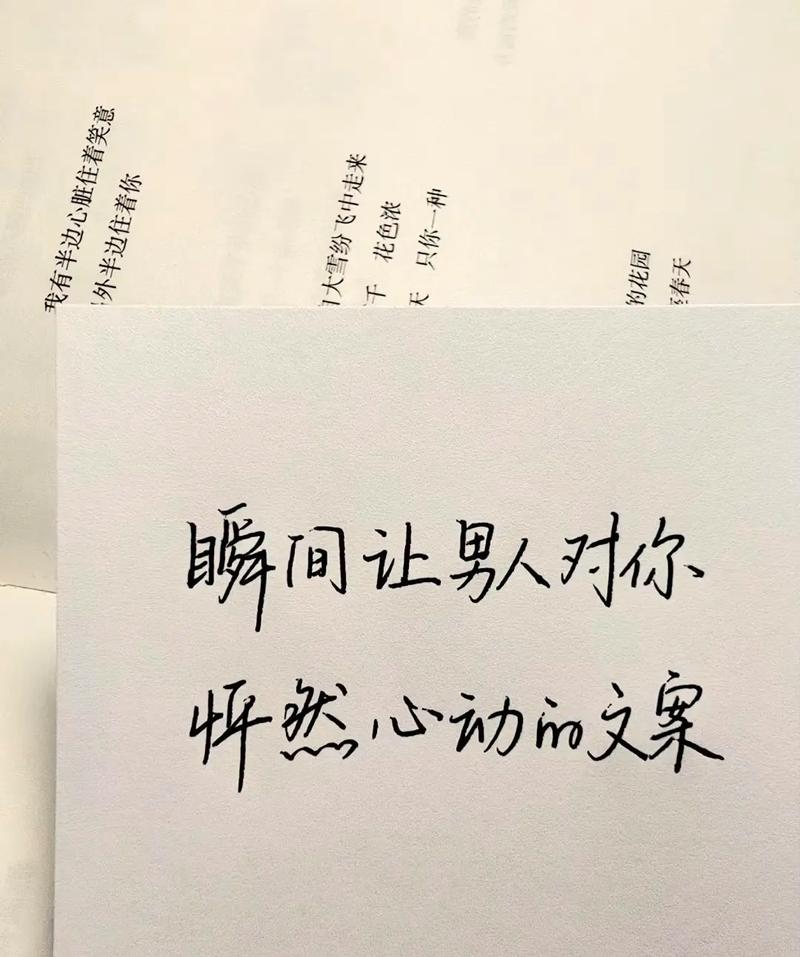 我有半边心脏住着笑意
外半边住着你
大雪纷飞中走来
千 花色浓
天 只你一种
的花园
春天
瞬间让男人对你
怦然心动的文案